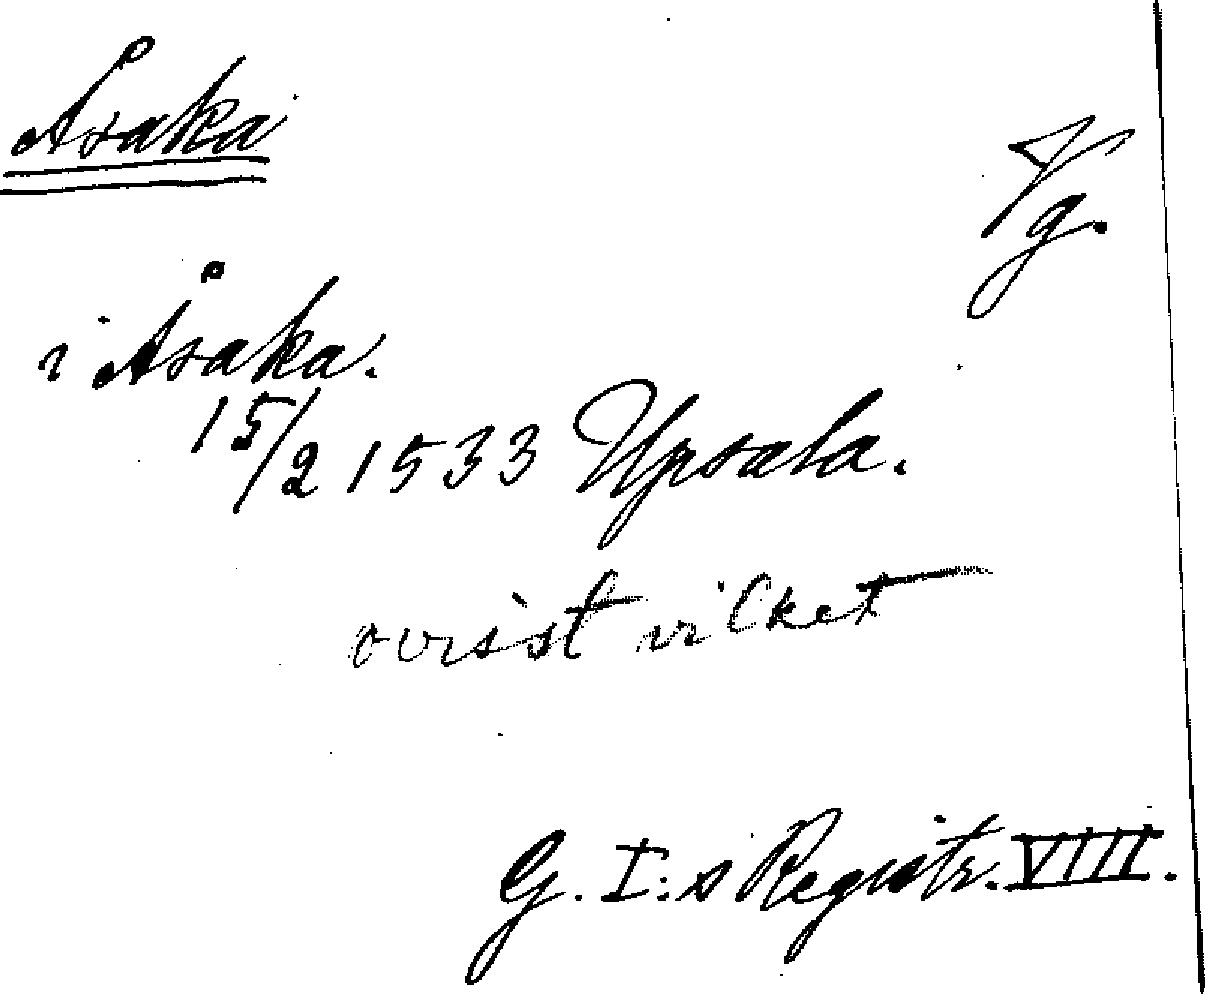 Åsaka
Vg.
i Åsaka.
15/2 1533 Upsala.
ovisst vilket
G. I:s Registr. VIII.